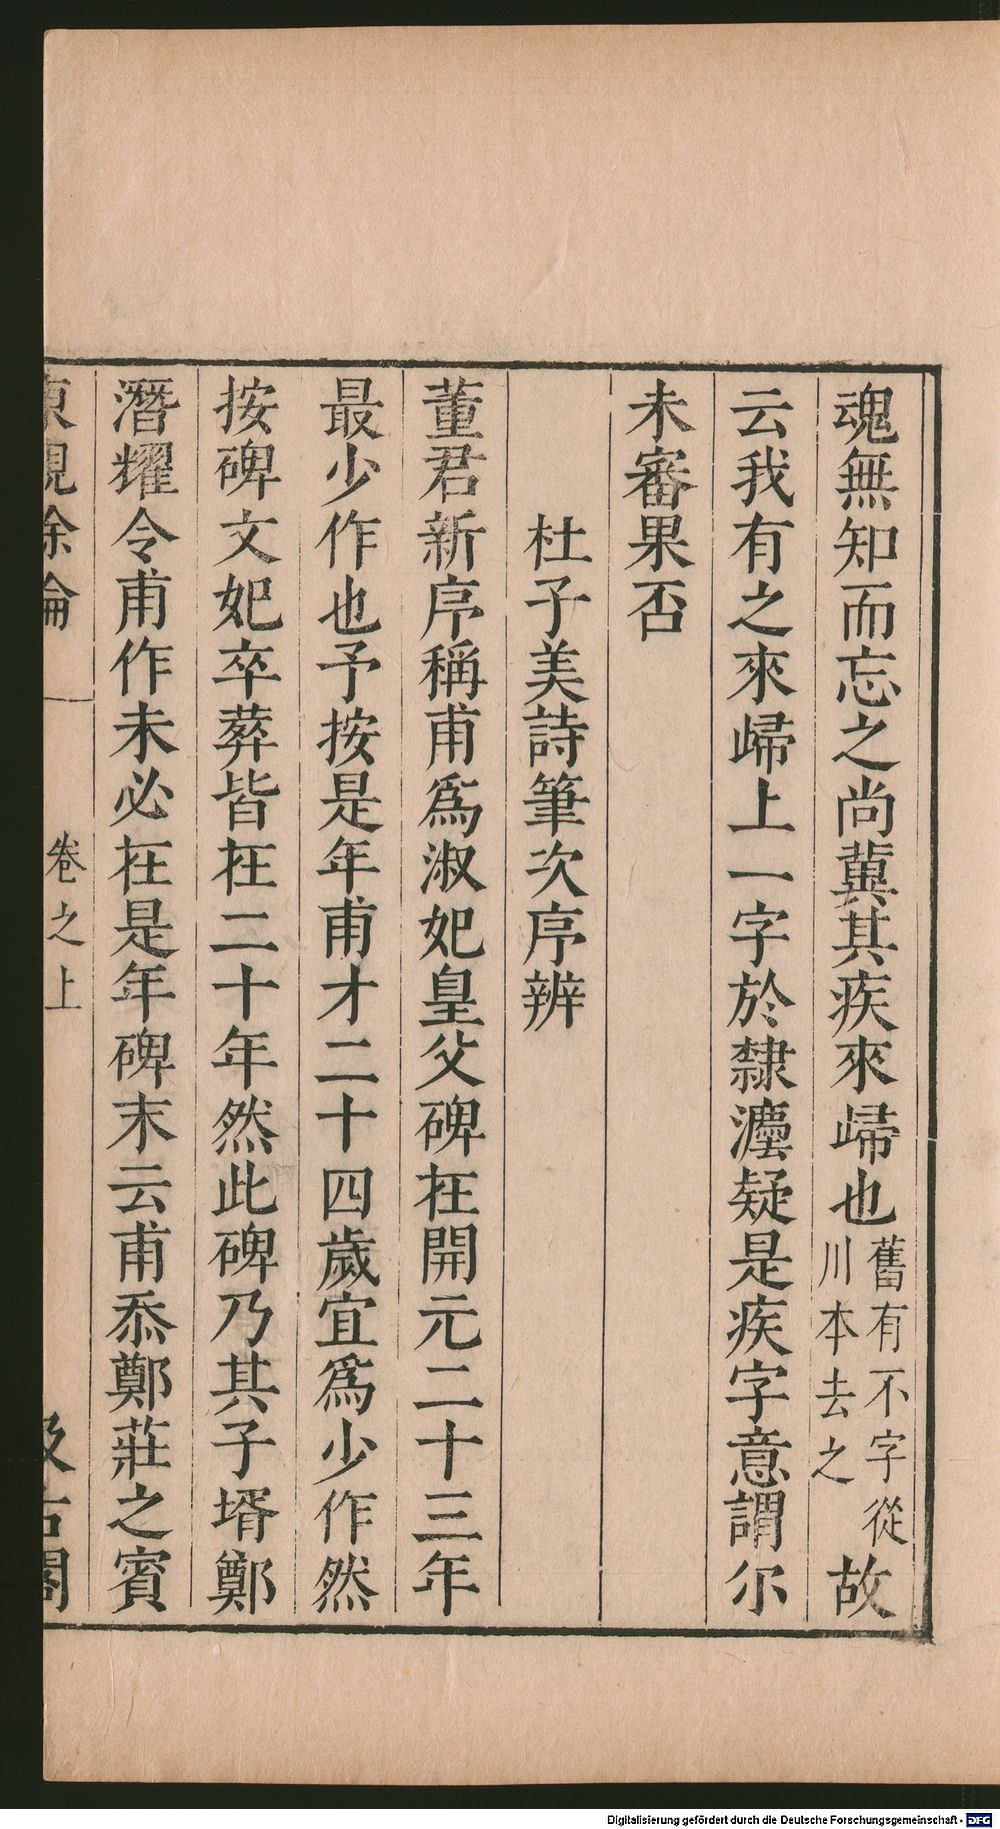 魂無知而忘之尚冀其疾來歸也舊有不字從川本去之故
云我有之來歸上一字於隸灋疑是疾字意謂尔
未審果否
杜子美詩筆次序辨
董君新序稱甫爲淑妃皇父碑在開元二十三年
最少作也予按是年甫才二十四歲宜爲少作然
按碑文妃卒葬皆在二十年然此碑乃其子壻鄭
潛耀令甫作未必在是年碑末云甫忝鄭莊之賓
東觀餘論 卷之上 汲古閣
Digitalisierung gefördert durch die Deutsche Forschungsgemeinschaft - DFG